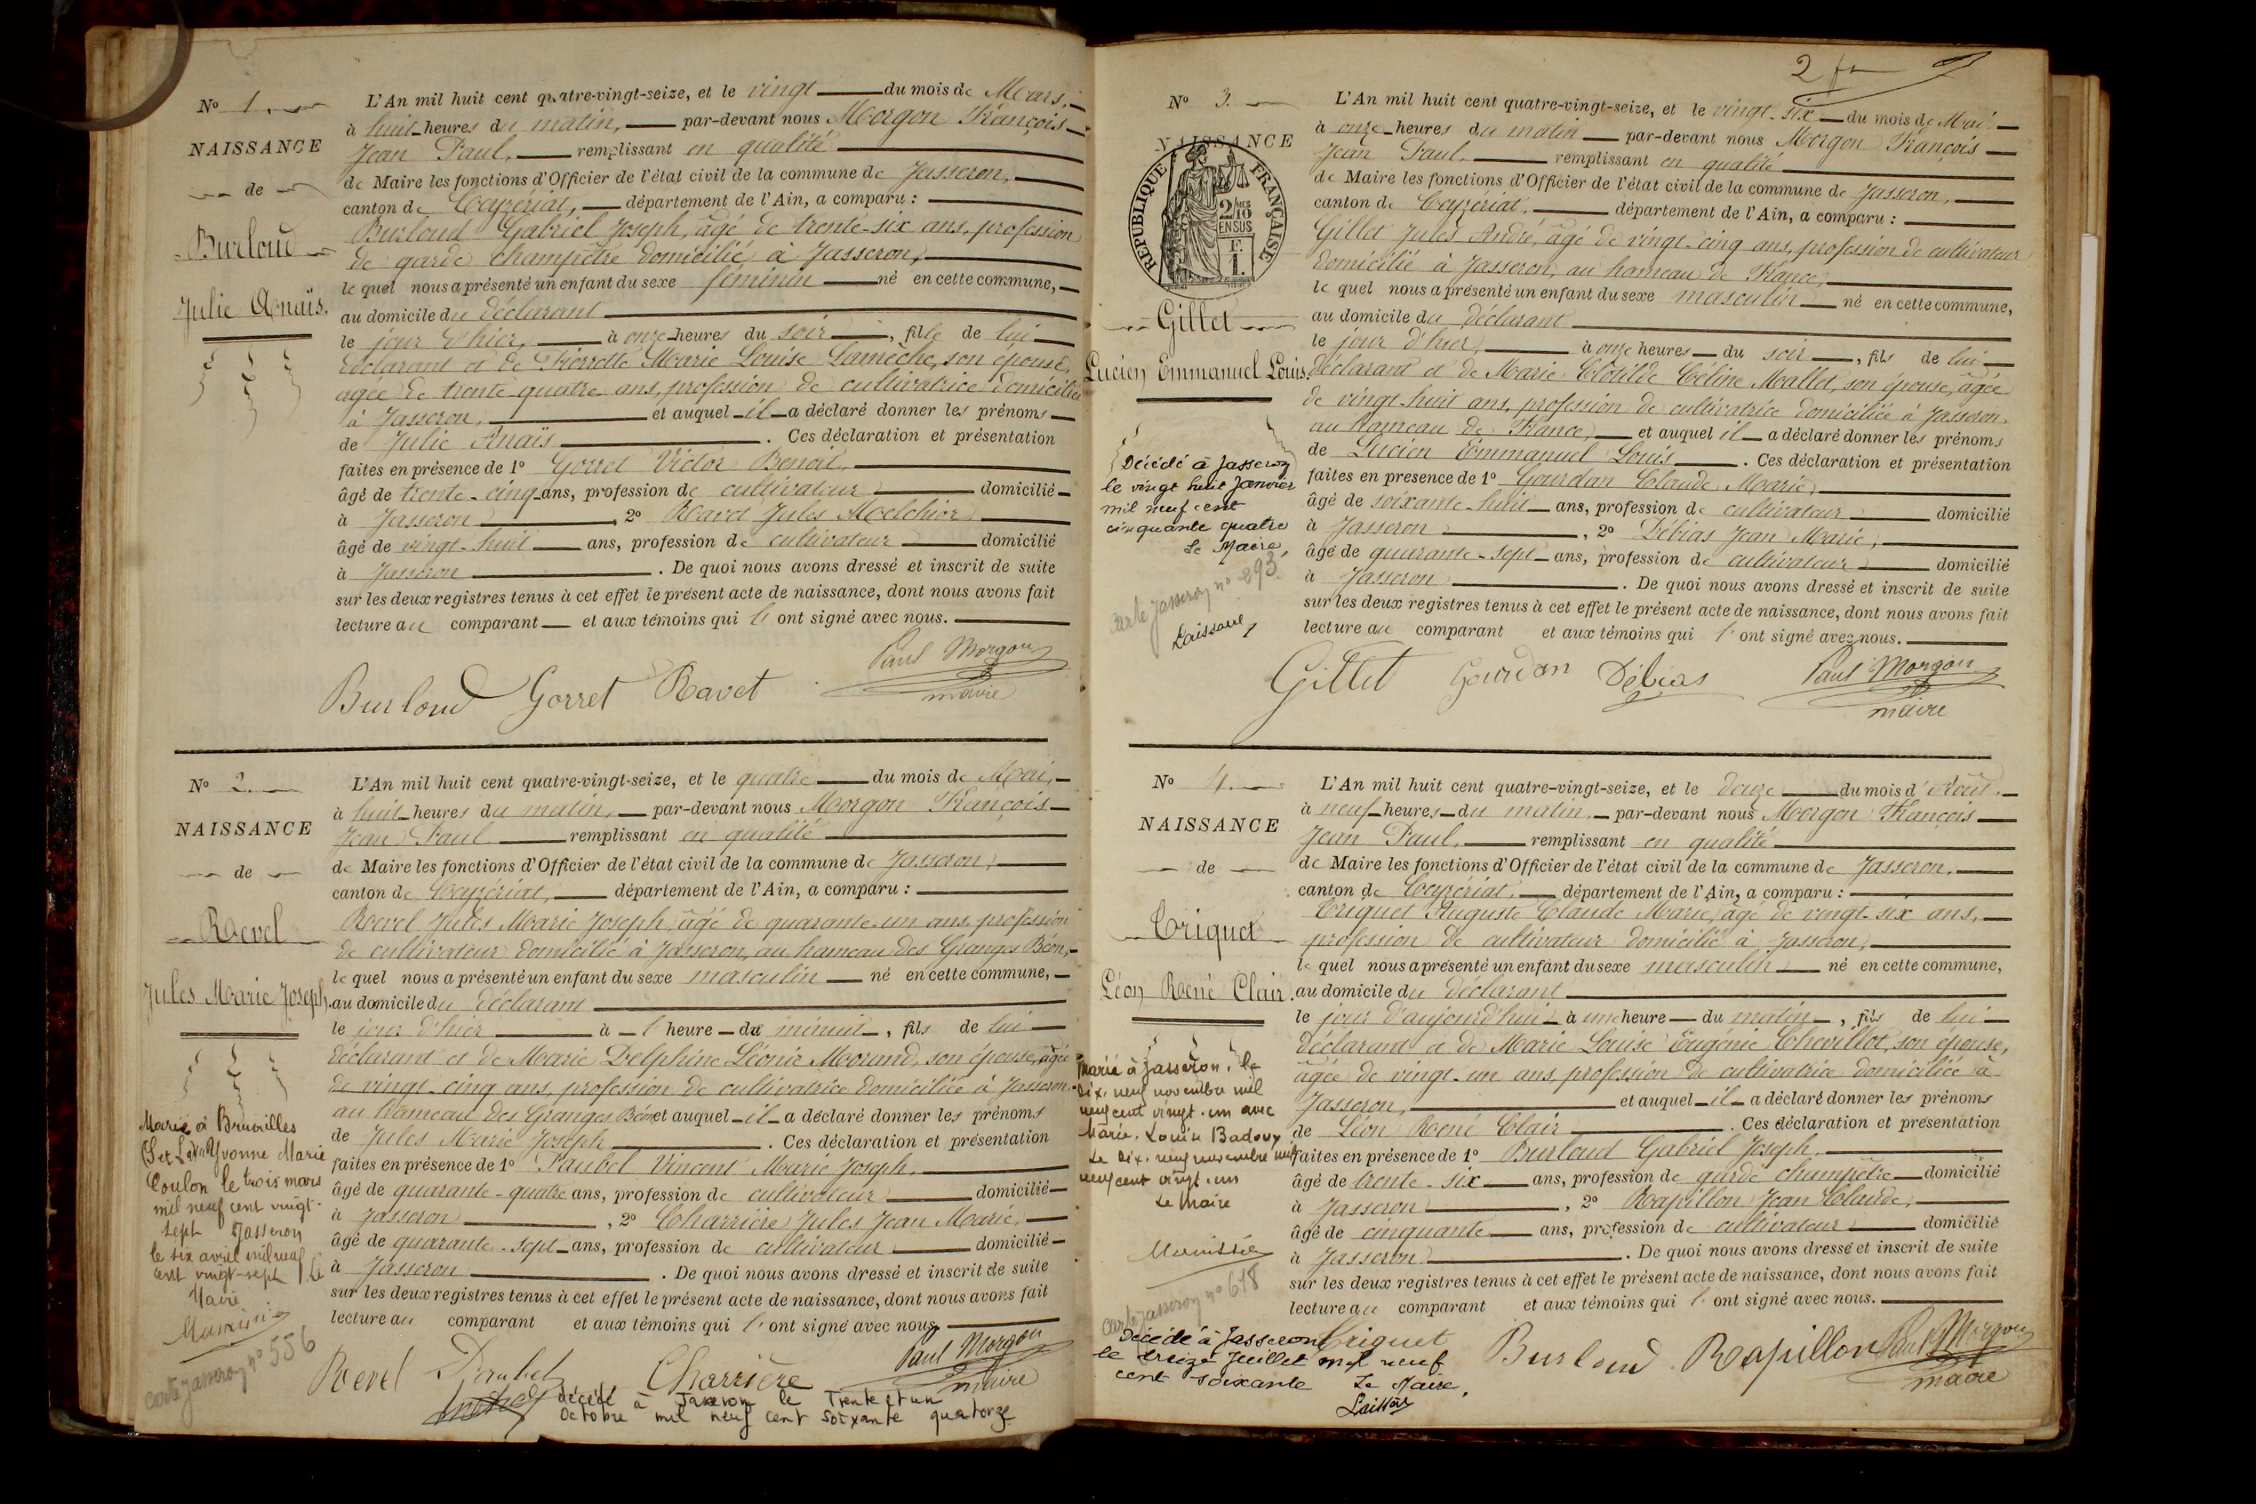 N° 1.
NAISSANCE
de
Burloud
Julie Anaïs.
L'An mil huit cent quatre-vingt-seize, et le vingt du mois de Mars,
à huit heures du matin, par-devant nous Morgon François
Jean Paul, remplissant en qualité
de Maire les fonctions d'Officier de l'état civil de la commune de Jasseron,
canton de Ceyzériat, département de l'Ain, a comparu :
Burloud Gabriel Joseph, âgé de trente-six ans, profession
de garde champêtre domicilié à Jasseron,
lequel nous a présenté un enfant du sexe féminin né en cette commune,
au domicile du déclarant
le jour d'hier, à onze heures du soir, fille de lui
déclarant et de Pierrette Marie Louise Lamèche, son épouse,
âgée de trente-quatre ans, profession de cultivatrice domiciliée
à Jasseron, et auquel il a déclaré donner les prénoms
de Julie Anaïs. Ces déclaration et présentation
faites en présence de 1° Gorret Victor Benoit,
âgé de trente-cinq ans, profession de cultivateur domicilié
à Jasseron, 2° Ravet Jules Melchior,
âgé de vingt-huit ans, profession de cultivateur domicilié
à Jasseron. De quoi nous avons dressé et inscrit de suite
sur les deux registres tenus à cet effet le présent acte de naissance, dont nous avons fait
lecture au comparant et aux témoins qui l'ont signé avec nous.
Burloud Gorret Ravet Paul Morgon
maire
N° 2.
NAISSANCE
de
Revel
Jules Marie Joseph.
L'An mil huit cent quatre-vingt-seize, et le quatre du mois de Mai,
à huit heures du matin, par-devant nous Morgon François
Jean Paul remplissant en qualité
de Maire les fonctions d'Officier de l'état civil de la commune de Jasseron,
canton de Ceyzériat, département de l'Ain, a comparu :
Revel Jules Marie Joseph, âgé de quarante-un ans, profession
de cultivateur domicilié à Jasseron, au hameau des Granges Béon,
lequel nous a présenté un enfant du sexe masculin né en cette commune,
au domicile du déclarant
le jour d'hier à l'heure de minuit, fils de lui
déclarant et de Marie Delphine Léonie Morand, son épouse, âgée
de vingt-cinq ans, profession de cultivatrice domiciliée à Jasseron
au hameau des Granges Béon et auquel il a déclaré donner les prénoms
de Jules Marie Joseph. Ces déclaration et présentation
faites en présence de 1° Faubel Vincent Marie Joseph,
âgé de quarante-quatre ans, profession de cultivateur domicilié
à Jasseron, 2° Charrière Jules Jean Marie,
âgé de quarante-sept ans, profession de cultivateur domicilié
à Jasseron. De quoi nous avons dressé et inscrit de suite
sur les deux registres tenus à cet effet le présent acte de naissance, dont nous avons fait
lecture au comparant et aux témoins qui l'ont signé avec nous
Revel Charrière Paul Morgon
maire
Marié à
Yvonne Marie
Coulon le trois mars
mil neuf cent vingt-
sept Jasseron
le six avril mil neuf
cent vingt-sept Le
Maire
carte Jasseron n° 556
décédé à Jasseron le Trente et un
Octobre mil neuf cent soixante quatorze
2
N° 3.
NAISSANCE
RÉPUBLIQUE FRANÇAISE
2/10
EN SUS
F.
1.
Gillet
Lucien Emmanuel Louis.
L'An mil huit cent quatre-vingt-seize, et le vingt-six du mois de Mai
à onze heures du matin par-devant nous Morgon François
Jean Paul, remplissant en qualité
de Maire les fonctions d'Officier de l'état civil de la commune de Jasseron,
canton de Ceyzériat, département de l'Ain, a comparu :
Gillet Jules André, âgé de vingt-cinq ans, profession de cultivateur
domicilié à Jasseron, au hameau de France,
lequel nous a présenté un enfant du sexe masculin né en cette commune,
au domicile du déclarant
le jour d'hier, à onze heures du soir, fils de lui
déclarant et de Marie Clotilde Céline Mallet, son épouse, âgée
de vingt-huit ans, profession de cultivatrice domiciliée à Jasseron,
au hameau de France, et auquel il a déclaré donner les prénoms
de Lucien Emmanuel Louis. Ces déclaration et présentation
faites en présence de 1° Gourdan Claude Marie,
âgé de soixante-huit ans, profession de cultivateur domicilié
à Jasseron, 2° Débias Jean Marie,
âgé de quarante-sept ans, profession de cultivateur domicilié
à Jasseron. De quoi nous avons dressé et inscrit de suite
sur les deux registres tenus à cet effet le présent acte de naissance, dont nous avons fait
lecture au comparant et aux témoins qui l'ont signé avec nous.
Gillet Gourdan Débias Paul Morgon
maire
Décédé à Jasseron
le vingt huit Janvier
mil neuf cent
cinquante quatre
Le Maire,
carte Jasseron n° 893
N° 4.
NAISSANCE
de
Criquet
Léon René Clair.
L'An mil huit cent quatre-vingt-seize, et le douze du mois d'Août,
à neuf heures du matin, par-devant nous Morgon François
Jean Paul, remplissant en qualité
de Maire les fonctions d'Officier de l'état civil de la commune de Jasseron,
canton de Ceyzériat, département de l'Ain, a comparu :
Criquet Auguste Claude Marie, âgé de vingt-six ans,
profession de cultivateur domicilié à Jasseron,
lequel nous a présenté un enfant du sexe masculin né en cette commune,
au domicile du déclarant
le jour d'aujourd'hui à une heure du matin, fils de lui
déclarant et de Marie Louise Eugénie Chevillot, son épouse,
âgée de vingt-un ans, profession de cultivatrice domiciliée à
Jasseron, et auquel il a déclaré donner les prénoms
de Léon René Clair. Ces déclaration et présentation
faites en présence de 1° Burloud Gabriel Joseph,
âgé de trente-six ans, profession de garde champêtre domicilié
à Jasseron, 2° Rapillon Jean Claude,
âgé de cinquante ans, profession de cultivateur domicilié
à Jasseron. De quoi nous avons dressé et inscrit de suite
sur les deux registres tenus à cet effet le présent acte de naissance, dont nous avons fait
lecture au comparant et aux témoins qui l'ont signé avec nous.
Criquet Burloud Rapillon Paul Morgon
maire
Marié à Jasseron, le
dix-neuf novembre mil
neuf cent vingt-un avec
Marie-Louise Badoux
Le dix-neuf novembre mil
neuf cent vingt-un
Le Maire
carte Jasseron n° 618
Décédé à Jasseron
le treize Juillet mil neuf
cent soixante Le Maire,